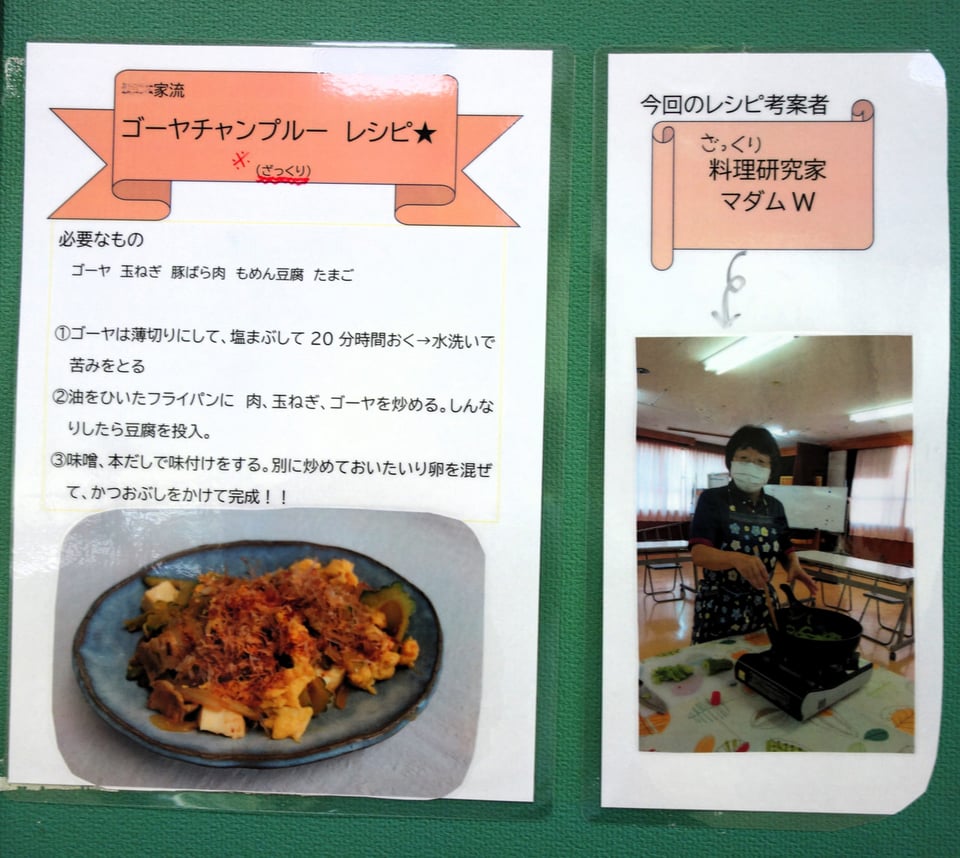 家流
ゴーヤチャンプルー レシピ★
※(ざっくり)
必要なもの
ゴーヤ 玉ねぎ 豚ばら肉 もめん豆腐 たまご
①ゴーヤは薄切りにして、塩まぶして 20 分時間おく→水洗いで
苦みをとる
②油をひいたフライパンに 肉、玉ねぎ、ゴーヤを炒める。しんな
りしたら豆腐を投入。
③味噌、本だしで味付けをする。別に炒めておいたいり卵を混ぜ
て、かつおぶしをかけて完成！！
今回のレシピ考案者
ざっくり
料理研究家
マダム W